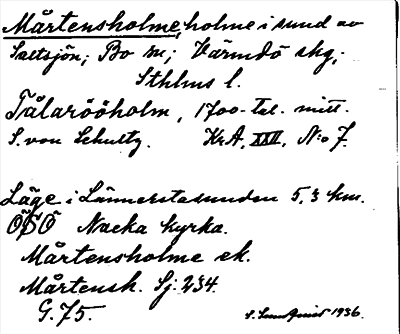 Mårtensholme, holme i sund av
Saltsjön; Bo sn; Värmdö skg,
Sthlms l.
Tålaröoholm, 1700-tal. mitt.
S. von Schultz. Kr.A, XXII, N:o 7.
Läge i Lännerstasunden 5,3 km.
ÖSÖ Nacka kyrka.
Mårtensholme ek.
Mårtensh. Sj: 234.
G. 75.
1936.